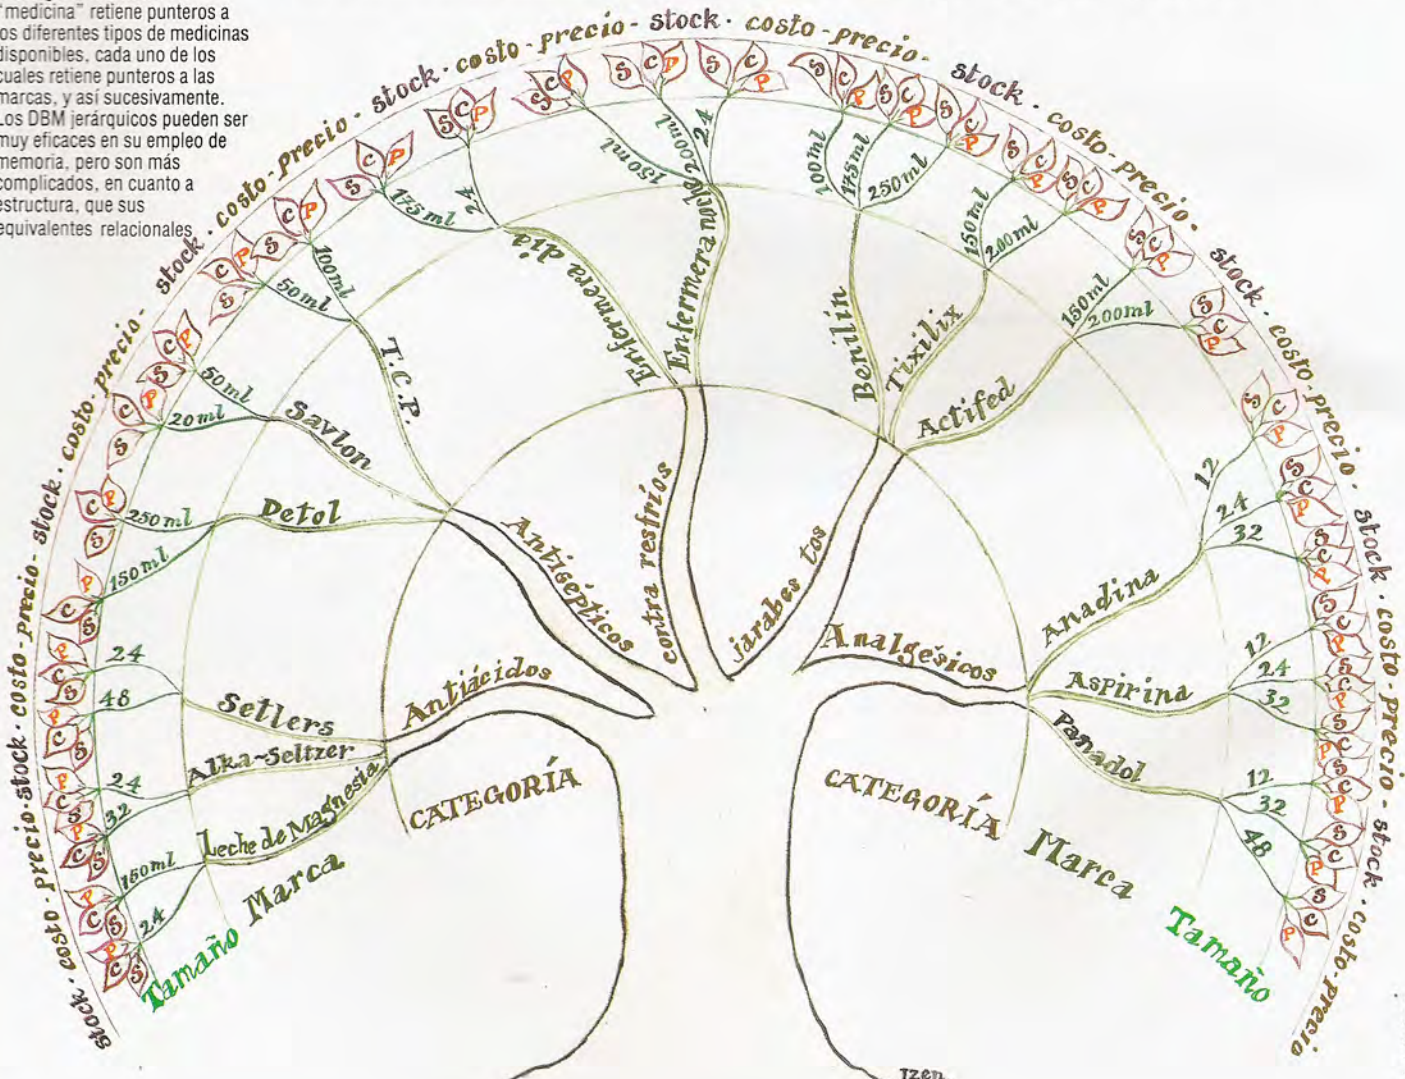 "medicina" retiene punteros a
los diferentes tipos de medicinas
disponibles, cada uno de los
cuales retiene punteros a las
marcas, y así sucesivamente.
Los DBM jerárquicos pueden ser
muy eficaces en su empleo de
memoria, pero son más
complicados, en cuanto a
estructura, que sus
equivalentes relacionales
stock · costo · precio · stock · costo · precio - stock · costo · precio - stock · costo · precio - stock · costo - precio · stock · costo - precio - stock · costo · precio - stock · costo - precio · stock · costo - precio · stock · costo · precio - stock · costo - precio - stock · costo - precio
CATEGORÍA
Marca
Tamaño
Antiácidos
Leche de Magnesia
24
S C P
150ml
S C P
Alka-Seltzer
32
S C P
24
S C P
Setlers
48
S C P
24
S C P
Antisépticos
Detol
150ml
S C P
250ml
S C P
Savlon
20ml
S C P
50ml
S C P
T.C.P.
50ml
S C P
100ml
S C P
contra resfríos
Enfermera día
175ml
S C P
24
S C P
Enfermera noche
150ml
S C P
200ml
S C P
24
S C P
jarabes tos
Benilín
100ml
S C P
175ml
S C P
250ml
S C P
Tixilix
150ml
S C P
200ml
S C P
Actifed
150ml
S C P
200ml
S C P
Analgésicos
Anadina
12
S C P
24
S C P
32
S C P
Aspirina
12
S C P
24
S C P
32
S C P
Panadol
12
S C P
32
S C P
48
S C P
CATEGORÍA
Marca
Tamaño